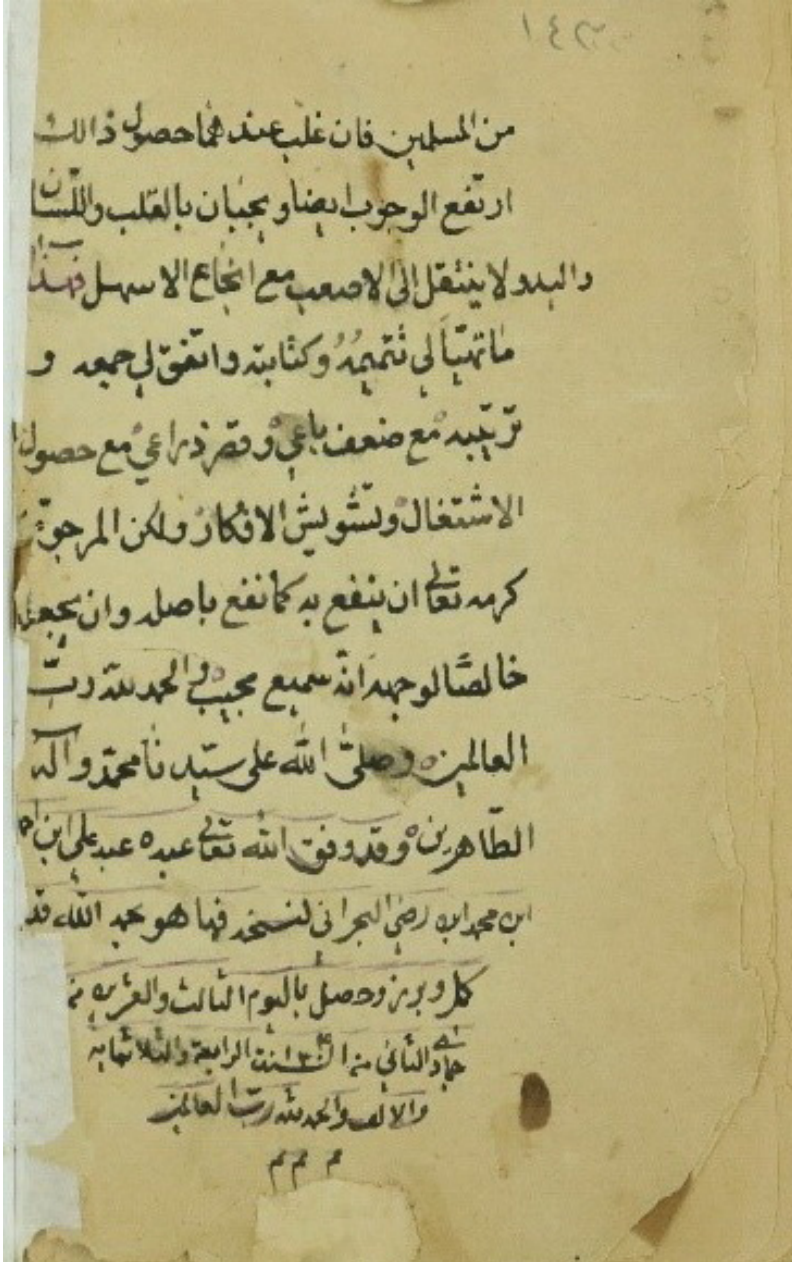 من المسلمين فان غلب عندهما حصول ذالك
ارتفع الوجوب ايضا و يجبان بالقلب واللسان
واليد ولا ينتقل الى الاصعب مع انجاع الاسهل فهذا
ما تهيأ لي تتميمه وكتابته واتفق لي جمعه و
ترتيبه مع ضعف باعي وقصر ذراعي مع حصول
الاشتغال وتشويش الافكار ولكن المرجو
كرمه تعالى ان ينفع به كما نفع باصله وان يجعله
خالصًا لوجهه انه سميع مجيب والحمد لله ربّ
العالمين وصلى الله على سيدنا محمد وآله
الطّاهرين وقد وفق الله تعالى عبده عبد علي ابن
ابن محمد ابن رضي البحراني لنسخه فها هو بحمد الله قد
كمل وبرز وحصل باليوم الثالث والعشرين من
جمادى الثاني من السنة الرابعة والثلاثمائة
والالف والحمد لله رب العالمين
م م م